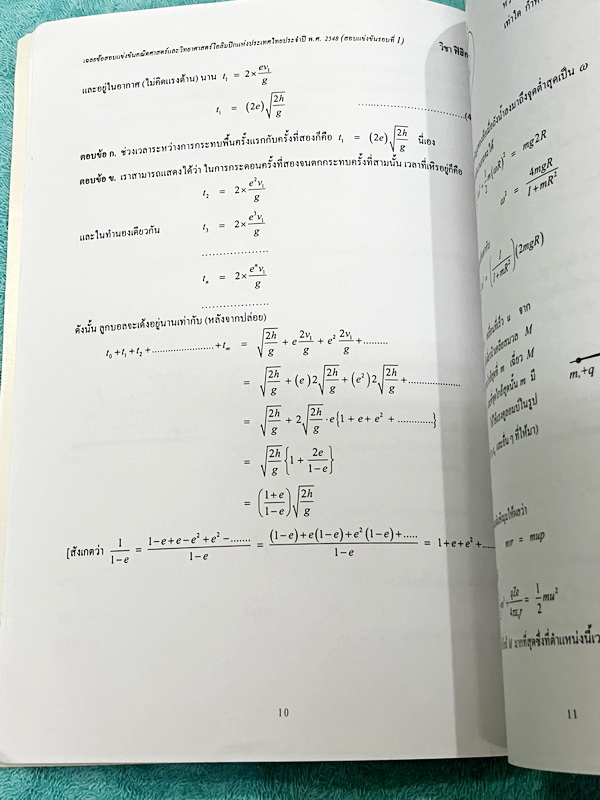 เฉลยข้อสอบแข่งขันคณิตศาสตร์และวิทยาศาสตร์โอลิมปิกแห่งประเทศไทยประจำปี พ.ศ. 2548 (สอบแข่งขันรอบที่ 1) วิชา ฟิสิก
และอยู่ในอากาศ (ไม่คิดแรงต้าน) นาน t₁ = 2×ev₁/g
t₁ = (2e)√(2h/g) ........................(4
ตอบข้อ ก. ช่วงเวลาระหว่างการกระทบพื้นครั้งแรกกับครั้งที่สองก็คือ t₁ = (2e)√(2h/g) นี่เอง
ตอบข้อ ข. เราสามารถแสดงได้ว่า ในการกระดอนครั้งที่สองจนตกกระทบครั้งที่สามนั้น เวลาที่เหิรอยู่ก็คือ
t₂ = 2×e²v₁/g
และในทำนองเดียวกัน t₃ = 2×e³v₁/g
....................
tₙ = 2×eⁿv₁/g
....................
ดังนั้น ลูกบอลจะเด้งอยู่นานเท่ากับ (หลังจากปล่อย)
t₀+t₁+t₂+........................+t∞ = √(2h/g) + e 2v₁/g + e² 2v₁/g +.........
= √(2h/g) + (e)2√(2h/g) + (e²)2√(2h/g) +...................
= √(2h/g) + 2√(2h/g)·e{1+e+e²+.............}
= √(2h/g){1+ 2e/(1−e)}
= ((1+e)/(1−e))√(2h/g)
[สังเกตว่า 1/(1−e) = (1−e+e−e²+e²−.......)/(1−e) = ((1−e)+e(1−e)+e²(1−e)+.....)/(1−e) = 1+e+e²+.....
10
= mg2R
ω² = 4mgR/(I+mR²)
(I/(I+mR²))(2mgR)
m,+q
mr = mup
qQe/4πε₀r = 1/2 mu²
11